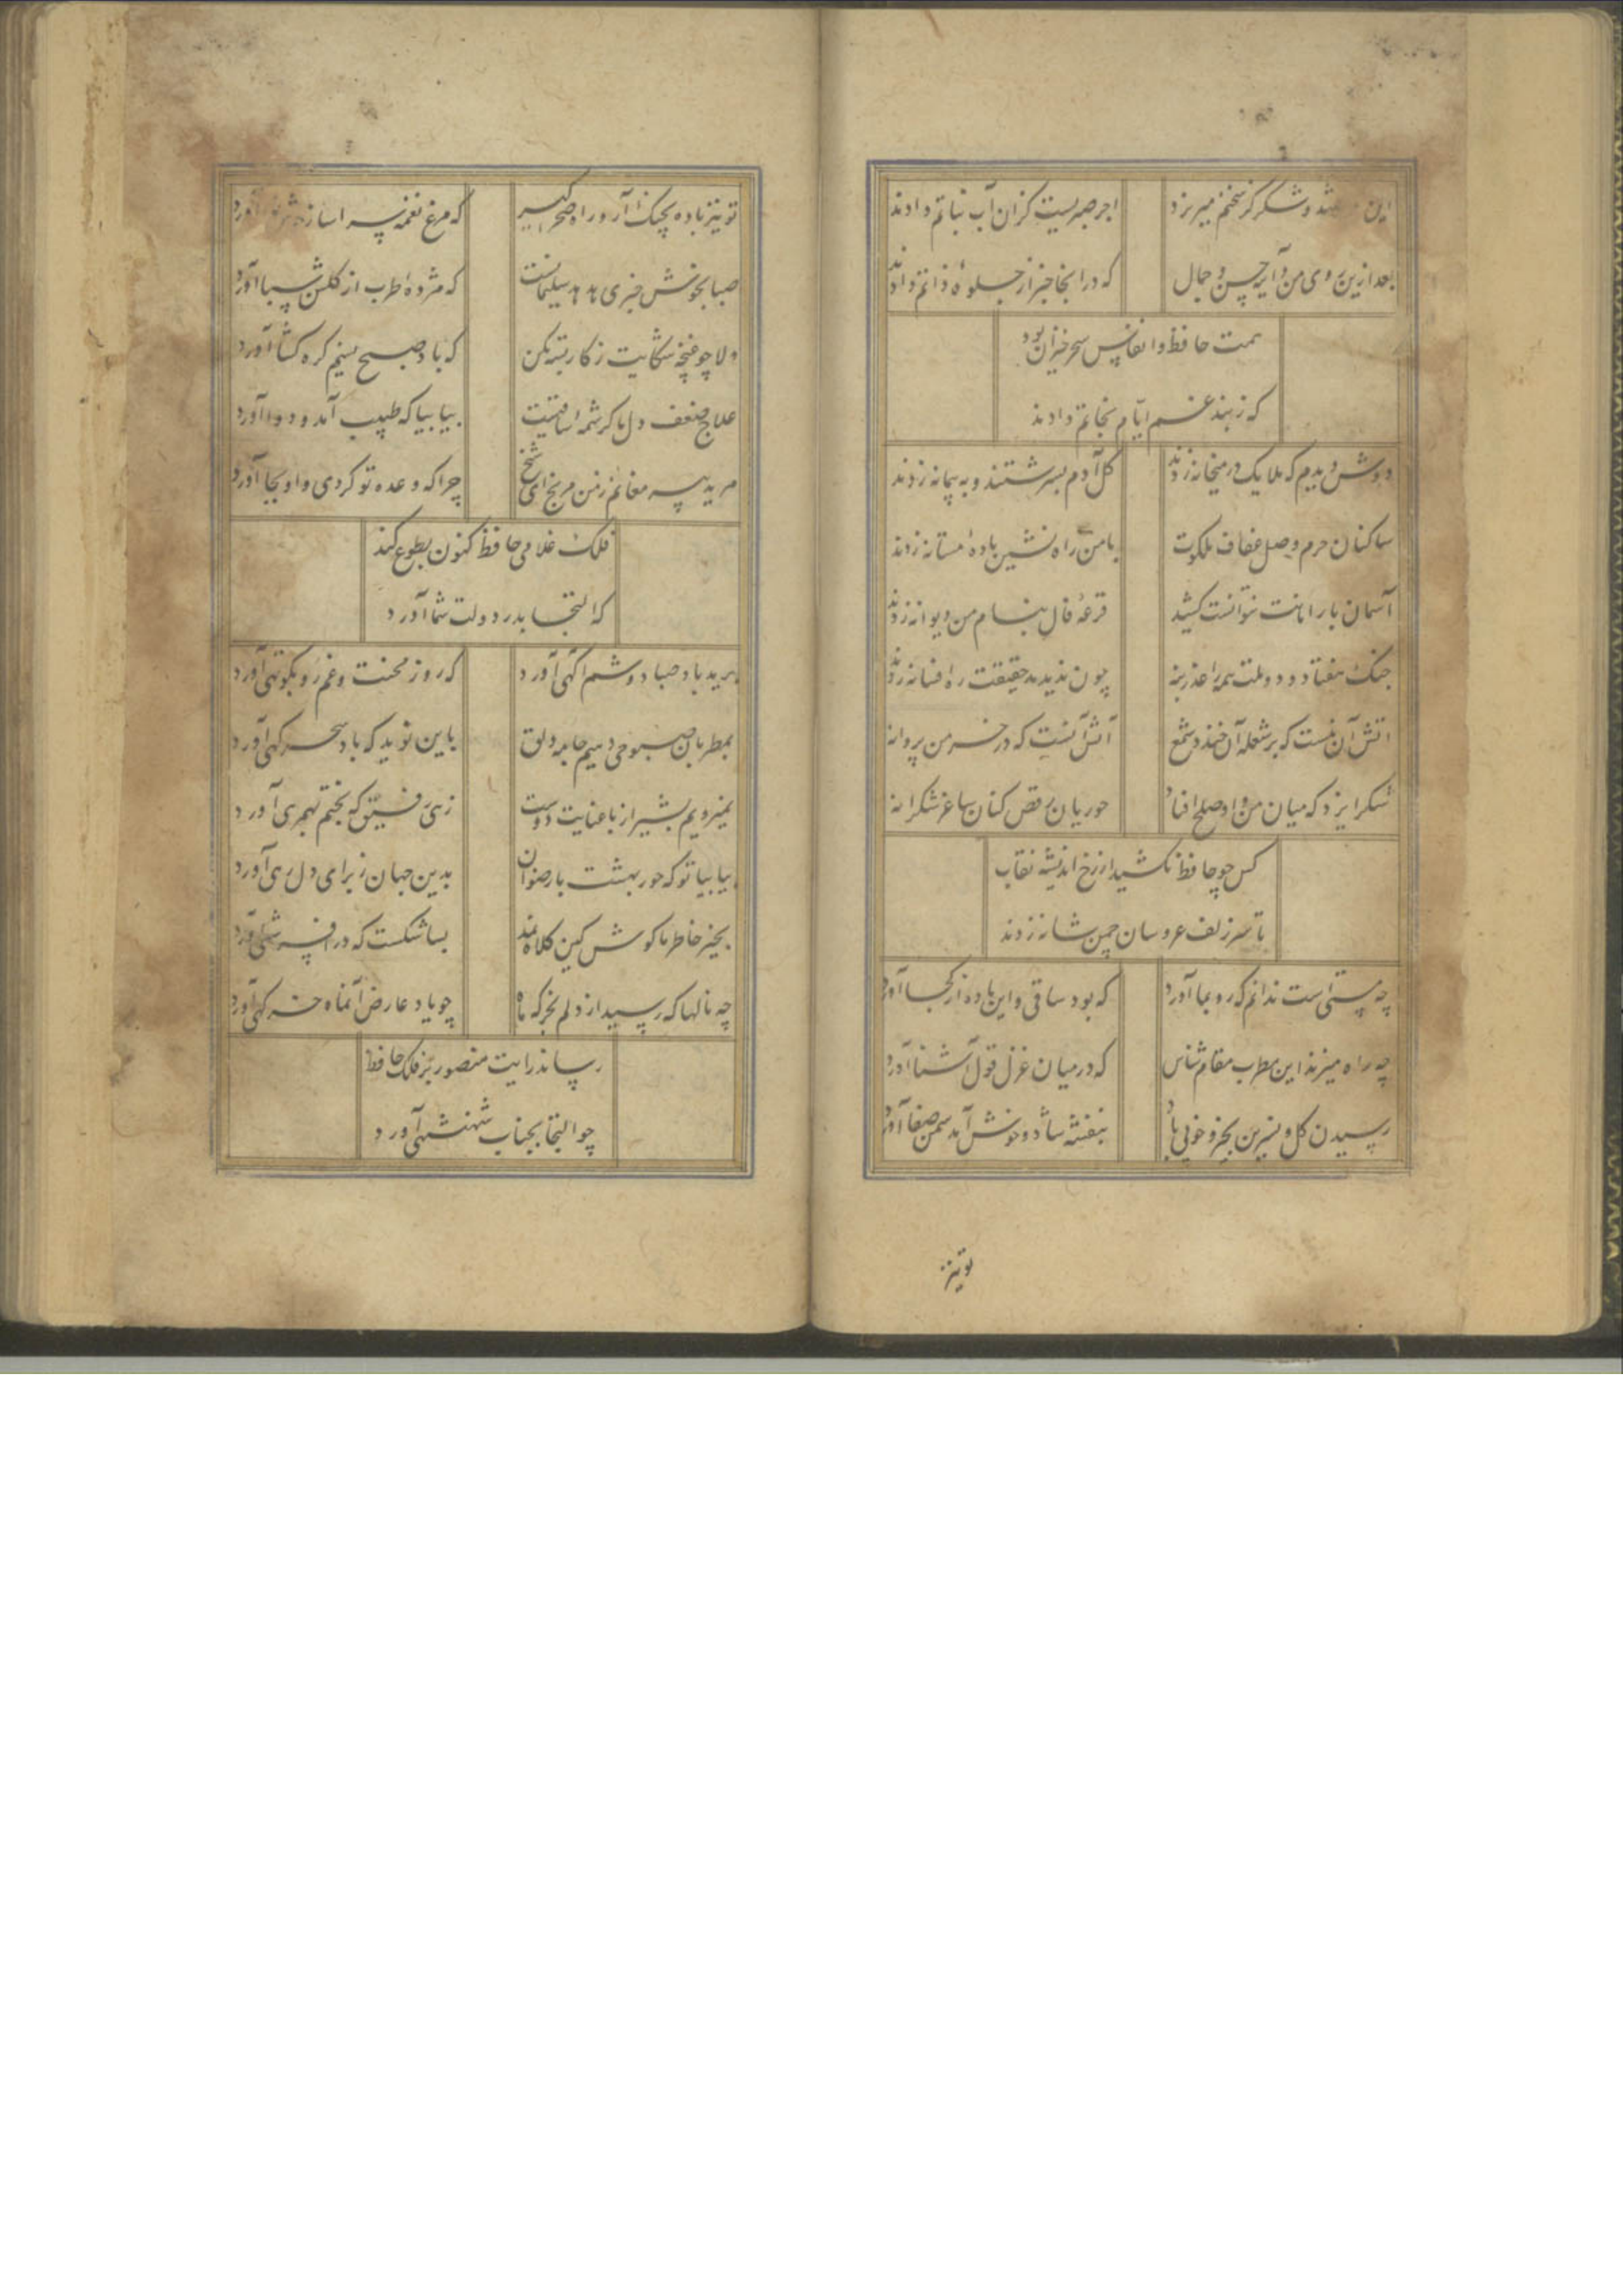 این شهد و شکر کز سخنم میریزد اجر صبریست کزان آب نباتم دادند
بعد ازین روی من و آینه حسن و جمال که در انجا خبر از جلوهٔ ذاتم دادند
همت حافظ و انفاس سحر خیزان بود
که ز بند غم ایام نجاتم دادند
دوش دیدم که ملایک در میخانه زدند گل آدم بسرشتند و به پیمانه زدند
ساکنان حرم وصل عفاف ملکوت با من راه نشین بادهٔ مستانه زدند
آسمان بار امانت نتوانست کشید قرعهٔ فال بنام من دیوانه زدند
جنک هفتاد و دو ملت همه را عذر بنه چون ندیدند حقیقت ره افسانه زدند
اتش آن نیست که بر شعله آن خندد شمع آتش آنست که در خرمن پروانه
شکر ایزد که میان من و او صلح افتاد حوریان رقص کنان ساغر شکرانه
کس چو حافظ نکشید از رخ اندیشه نقاب
تا سر زلف عروسان چمن شانه زدند
چه مستی است ندانم که رو بما آورد که بود ساقی و این باده از کجا آورد
چه راه میزند این مطرب مقام شناس که در میان غزل قول آشنا آورد
رسیدن گل و نسرین بخیر و خوبی باد بنفشه شاد و خوش آمد سمن صفا آورد
تو نیز
تو نیز باده بچنک آر و راه صحرا گیر که مرغ نغمه سرا ساز آورد
صبا بخوش خبری هدهد سلیمانست که مژدهٔ طرب از گلشن سبا آورد
دلا چو غنچه شکایت ز کار بسته مکن که باد صبح نسیم گره گشا آورد
علاج ضعف دل ما کرشمه ساقیست بیا بیا که طبیب آمد و دوا آورد
مرید پیر مغانم ز من مرنج ای شیخ چرا که وعده تو کردی و او بجا آورد
فلک غلامی حافظ کنون بطوع کند
که التجا بدر دولت شما آورد
برید باد صبا دوشم آگهی آورد که روز محنت و غم رو بکوتهی آورد
بمطربان صبوحی دهیم جامه دلق باین نوید که باد سحر گهی آورد
میرویم بشیراز با عنایت دوست زهی رفیق که بختم بهمرهی آورد
بیا بیا تو که حور بهشت با رضوان بدین جهان ز برای دل رهی آورد
بخیر خاطر ما کوش کین کلاه نمد بسا شکست که در افسر شهی آورد
چه نالها که رسید از دلم بخرگه ماه چو یاد عارض آنماه خرگهی آورد
رساند رایت منصور بر فلک حافظ
چو التجا بجناب شهنشهی آورد